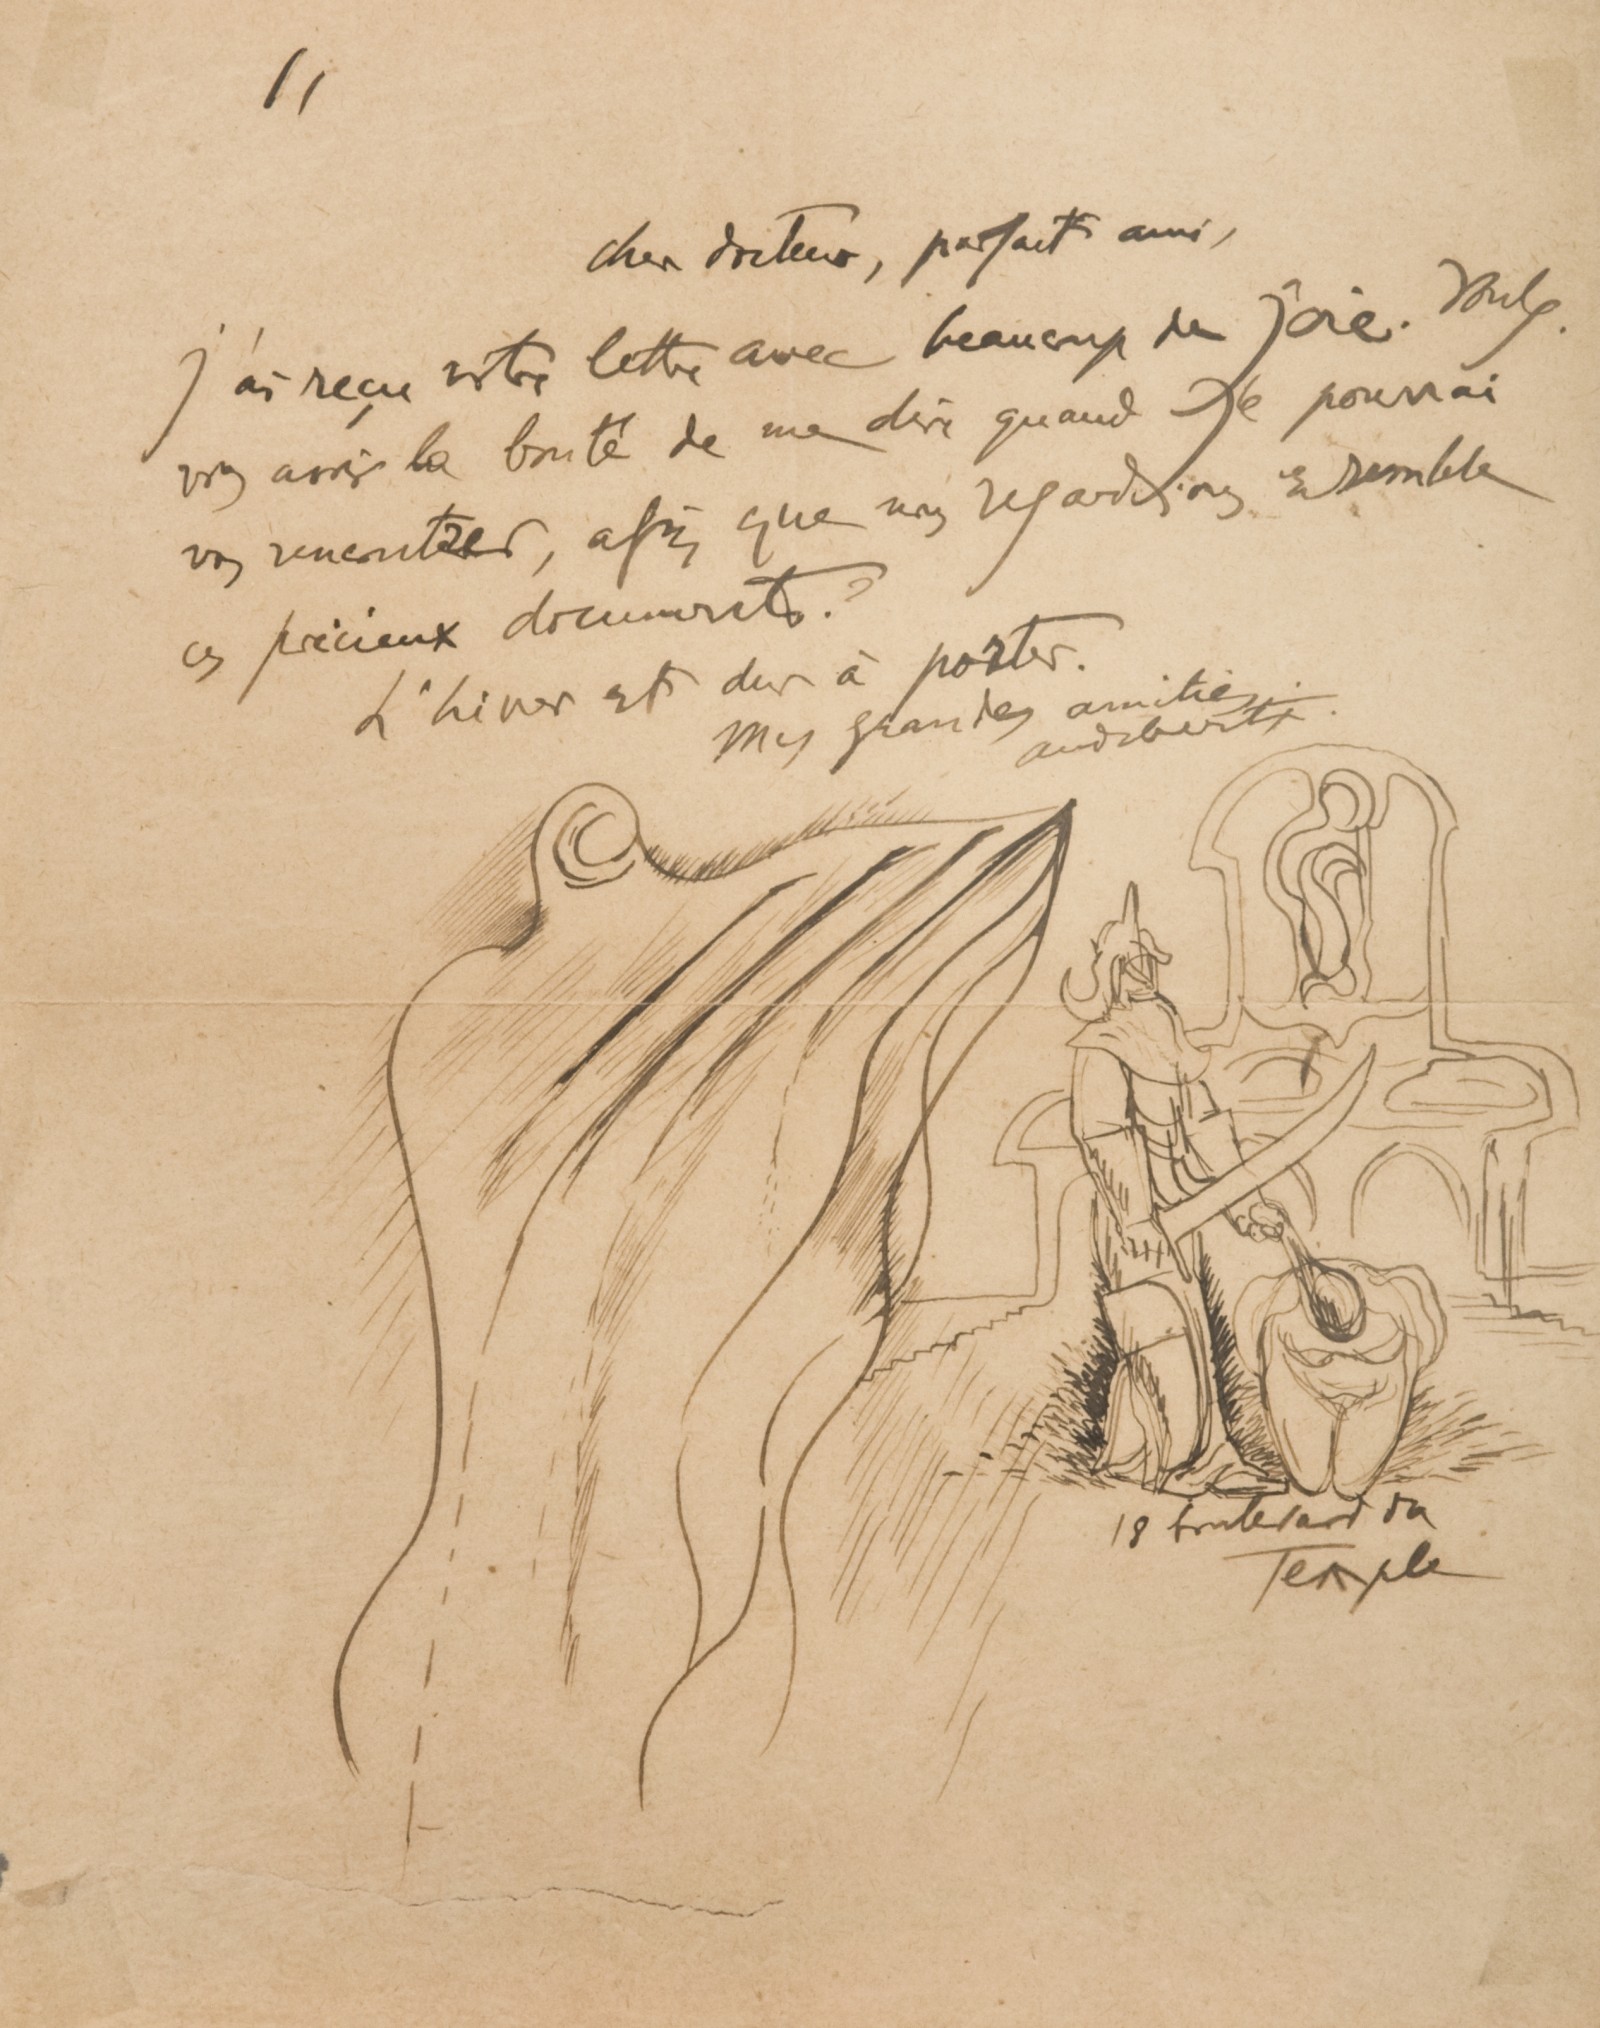 cher docteur, parfait ami,
j'ai reçu votre lettre avec beaucoup de joie. Voulez
vous avoir la bonté de me dire quand je pourrai
vous rencontrer, afin que nous regardions ensemble
ces précieux documents.?
L'hiver est dur à porter.
Mes grandes amitiés.
audiberti.
18 boulevard du
Temple